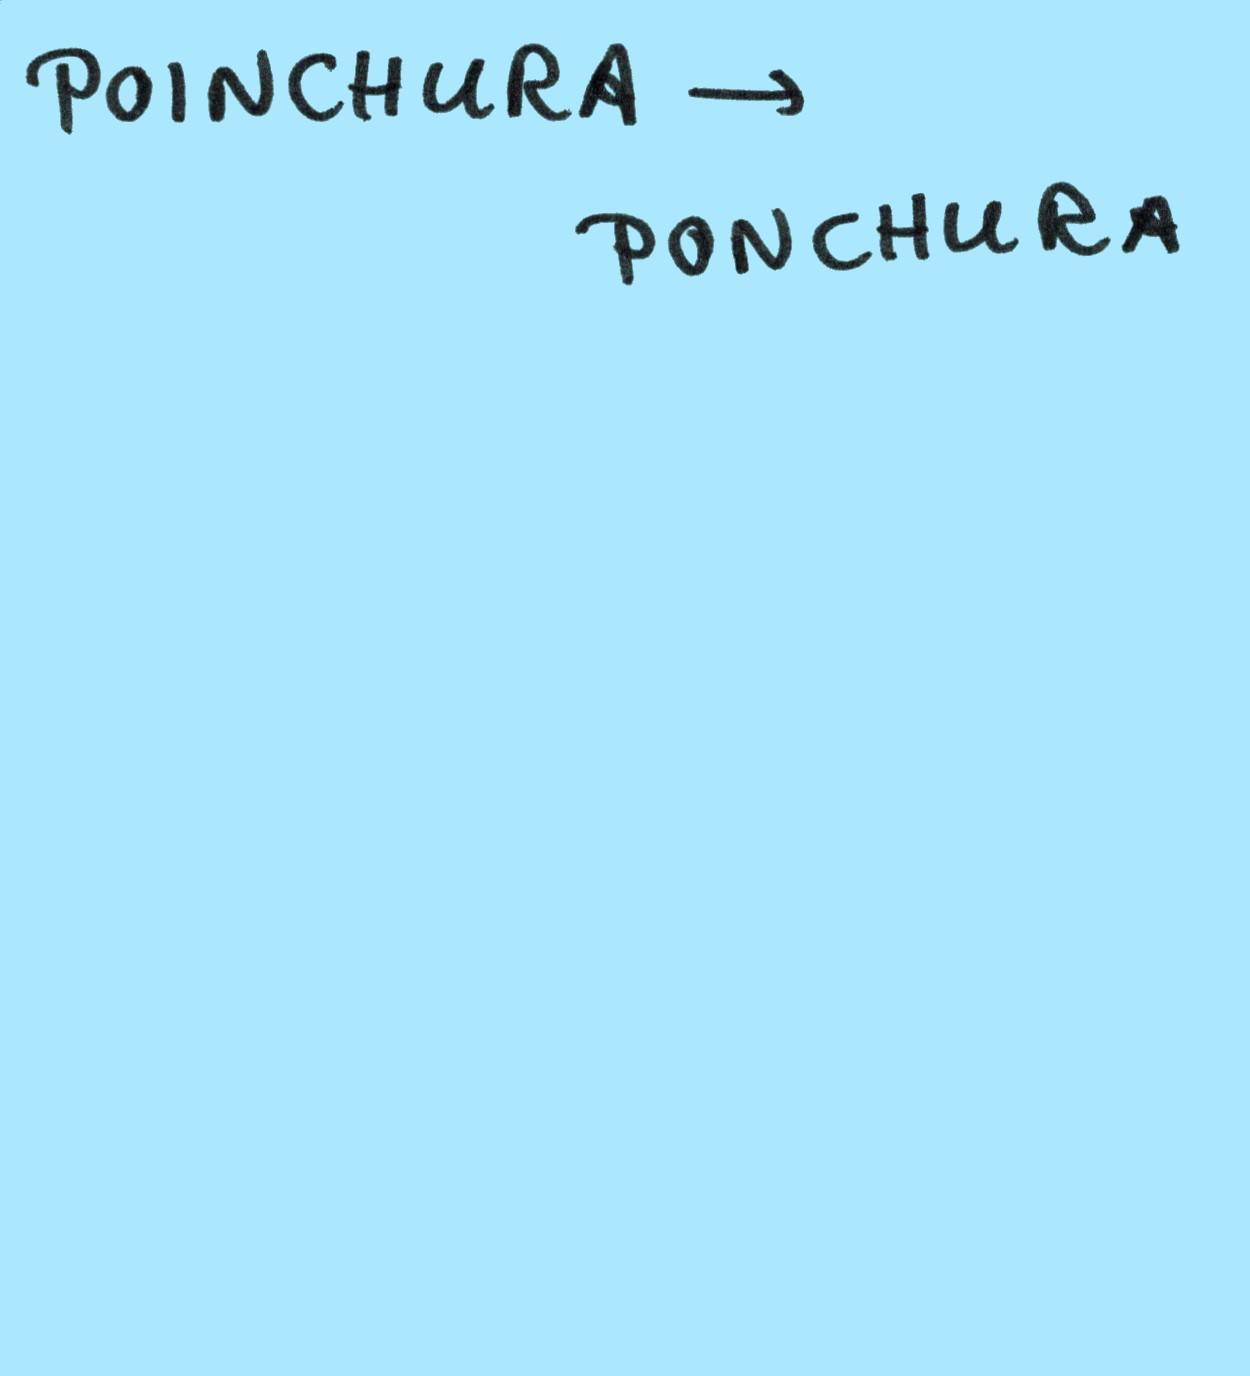 POINCHURA →
PONCHURA